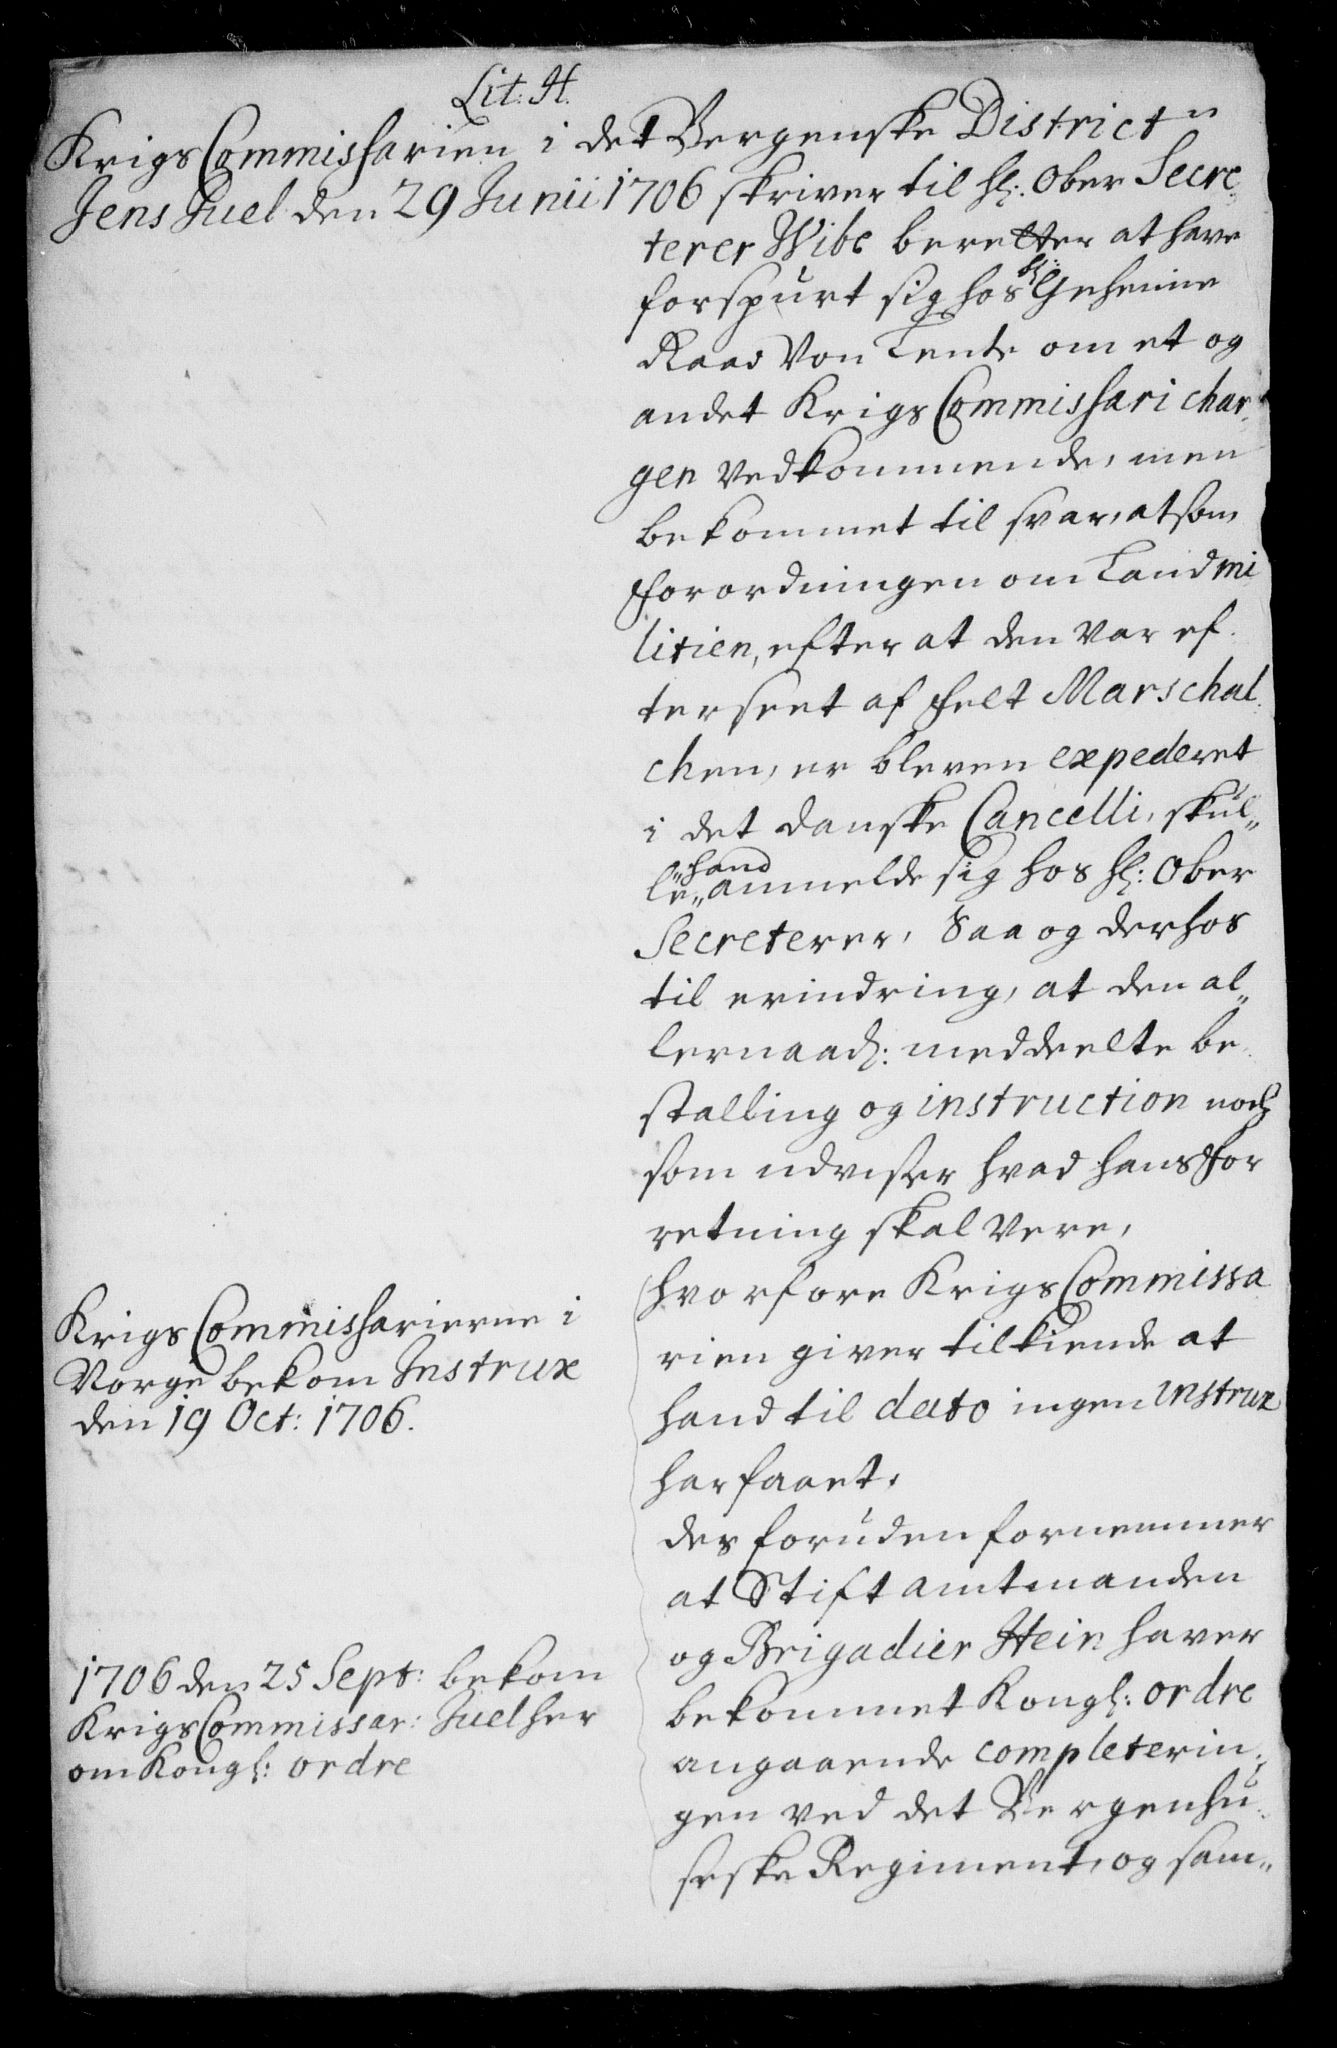 Lit: H.
Krigs Commissarien i det Bergenske District
Jens Juel den 29 Junii 1706 skriver til Hr: Ober Secre
terer Wibe beretter at have
forspurt sig hos hr: Geheime
Raad Von Lente om et og
andet Krigs Commissari char,
gen vedkommende, men
bekommet til svar, at som
Forordningen om Land mi
litien, efter at den var ef
terseet af Felt Marschal
chen, er bleven expederet
i det danske Cancelli, skul„
le„ hand anmelde sig hos Hr: Ober
Secreterer, Saa og derhos
til erindring, at den al„
lernaad: meddeelte be
stalling og instruction nock
som udviser hvad hans For
retning skal vere,
hvorfore Krigs Commissa
rien giver tilkiende at
hand til dato ingen instrux
har faaet.
des foruden fornemmer
at Stift amtmanden
og Brigadier Hein haver
bekommet Kongl: ordre
angaaende completerin,
gen ved det Bergenhu
seske Regiment, og sam„
Krigs Commissarierne i
Norge bekom Instrux
den 19 Oct: 1706.
1706 den 25 Sept: bekom
Krigs Commissar: Juel her
om Kongl: ordre